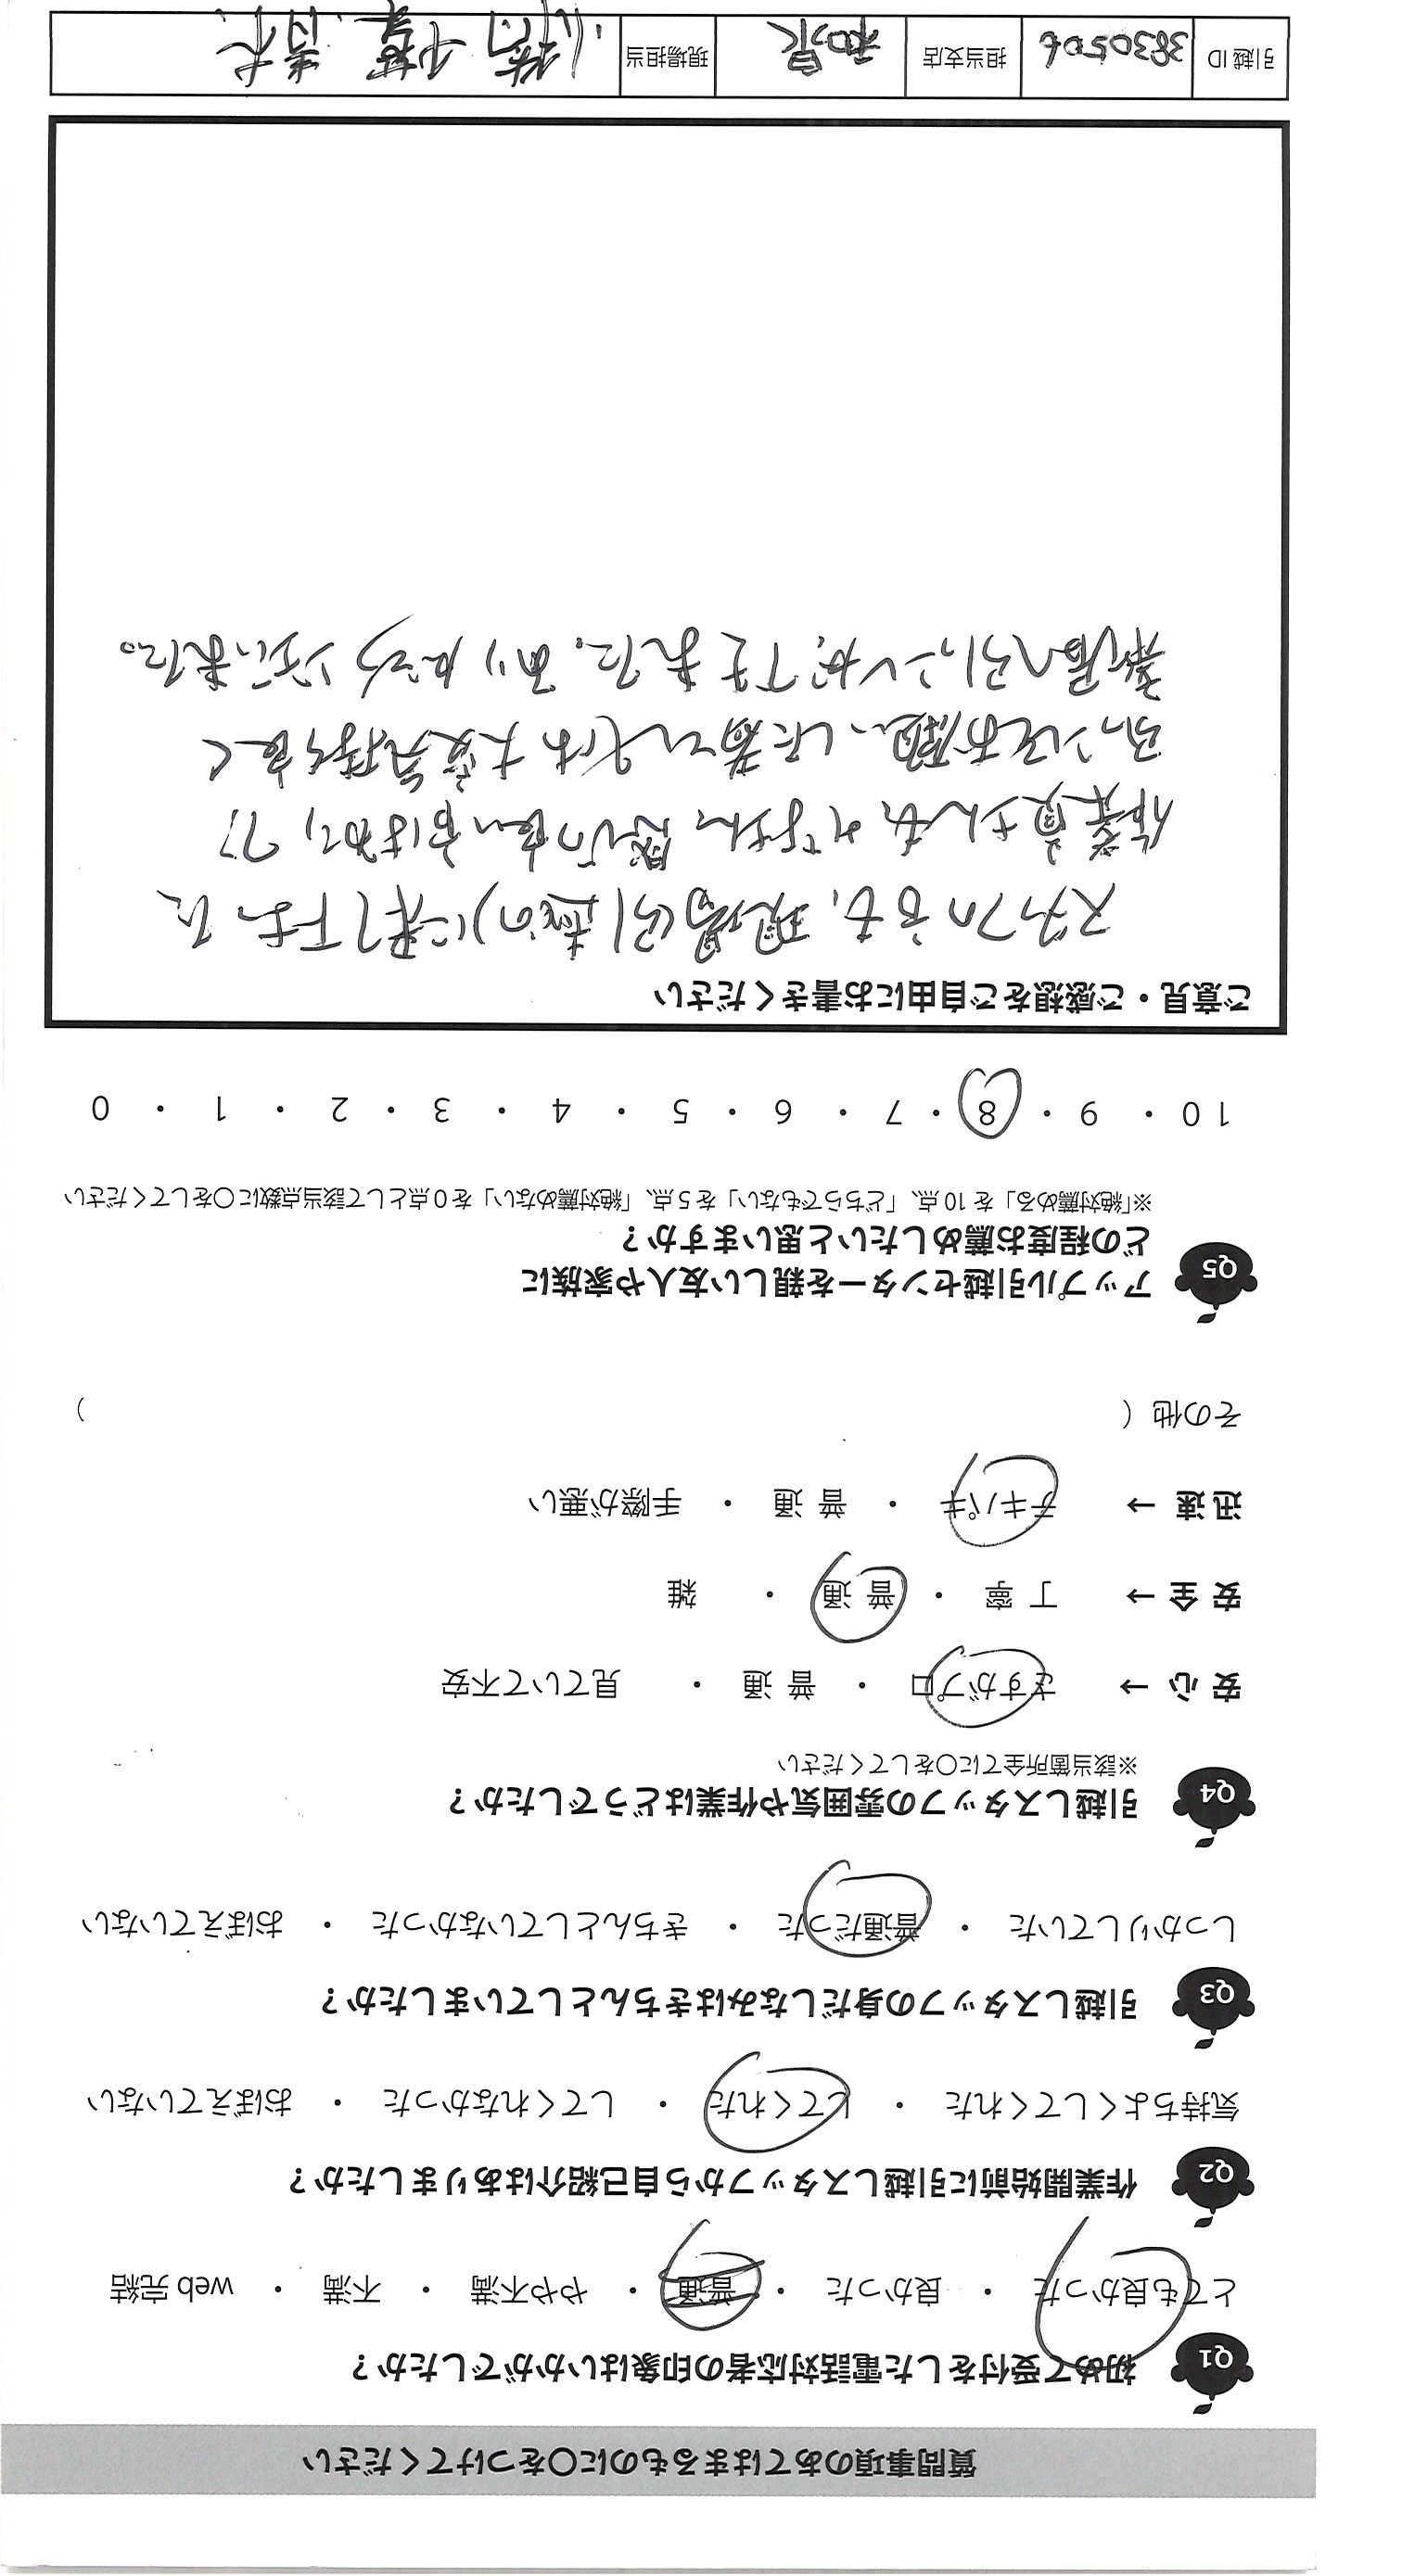 質問事項のあてはまるものに○をつけてください
Q1 初めて受付をした電話対応者の印象はいかがでしたか？
とても良かった ・ 良かった ・ 普通 ・ やや不満 ・ 不満 ・ web 完結
Q2 作業開始前に引越しスタッフから自己紹介はありましたか？
気持ちよくしてくれた ・ してくれた ・ してくれなかった ・ おぼえていない
Q3 引越しスタッフの身だしなみはきちんとしていましたか？
しっかりしていた ・ 普通だった ・ きちんとしていなかった ・ おぼえていない
Q4 引越しスタッフの雰囲気や作業はどうでしたか？
※該当箇所全てに○をしてください
安 心 → さすがプロ ・ 普 通 ・ 見ていて不安
安 全 → 丁 寧 ・ 普 通 ・ 雑
迅 速 → テキパキ ・ 普 通 ・ 手際が悪い
その他（ ）
Q5 アップル引越センターを親しい友人や家族に
どの程度お薦めしたいと思いますか？
※「絶対薦める」を 10 点、「どちらでもない」を 5 点、「絶対薦めない」を 0 点として該当点数に○をしてください
10 ・ 9 ・ 8 ・ 7 ・ 6 ・ 5 ・ 4 ・ 3 ・ 2 ・ 1 ・ 0
ご意見・ご感想をご自由にお書きください
スタッフの方も、現場(引越の)に来て下さった
作業員さんも、みなさん、感じの良い方ばかりで
お願いした者としては大変気持ち良く
新居へ引っこしができました。ありがとうございました。
引越 ID 3830506 担当支店 和泉 現場担当 青木